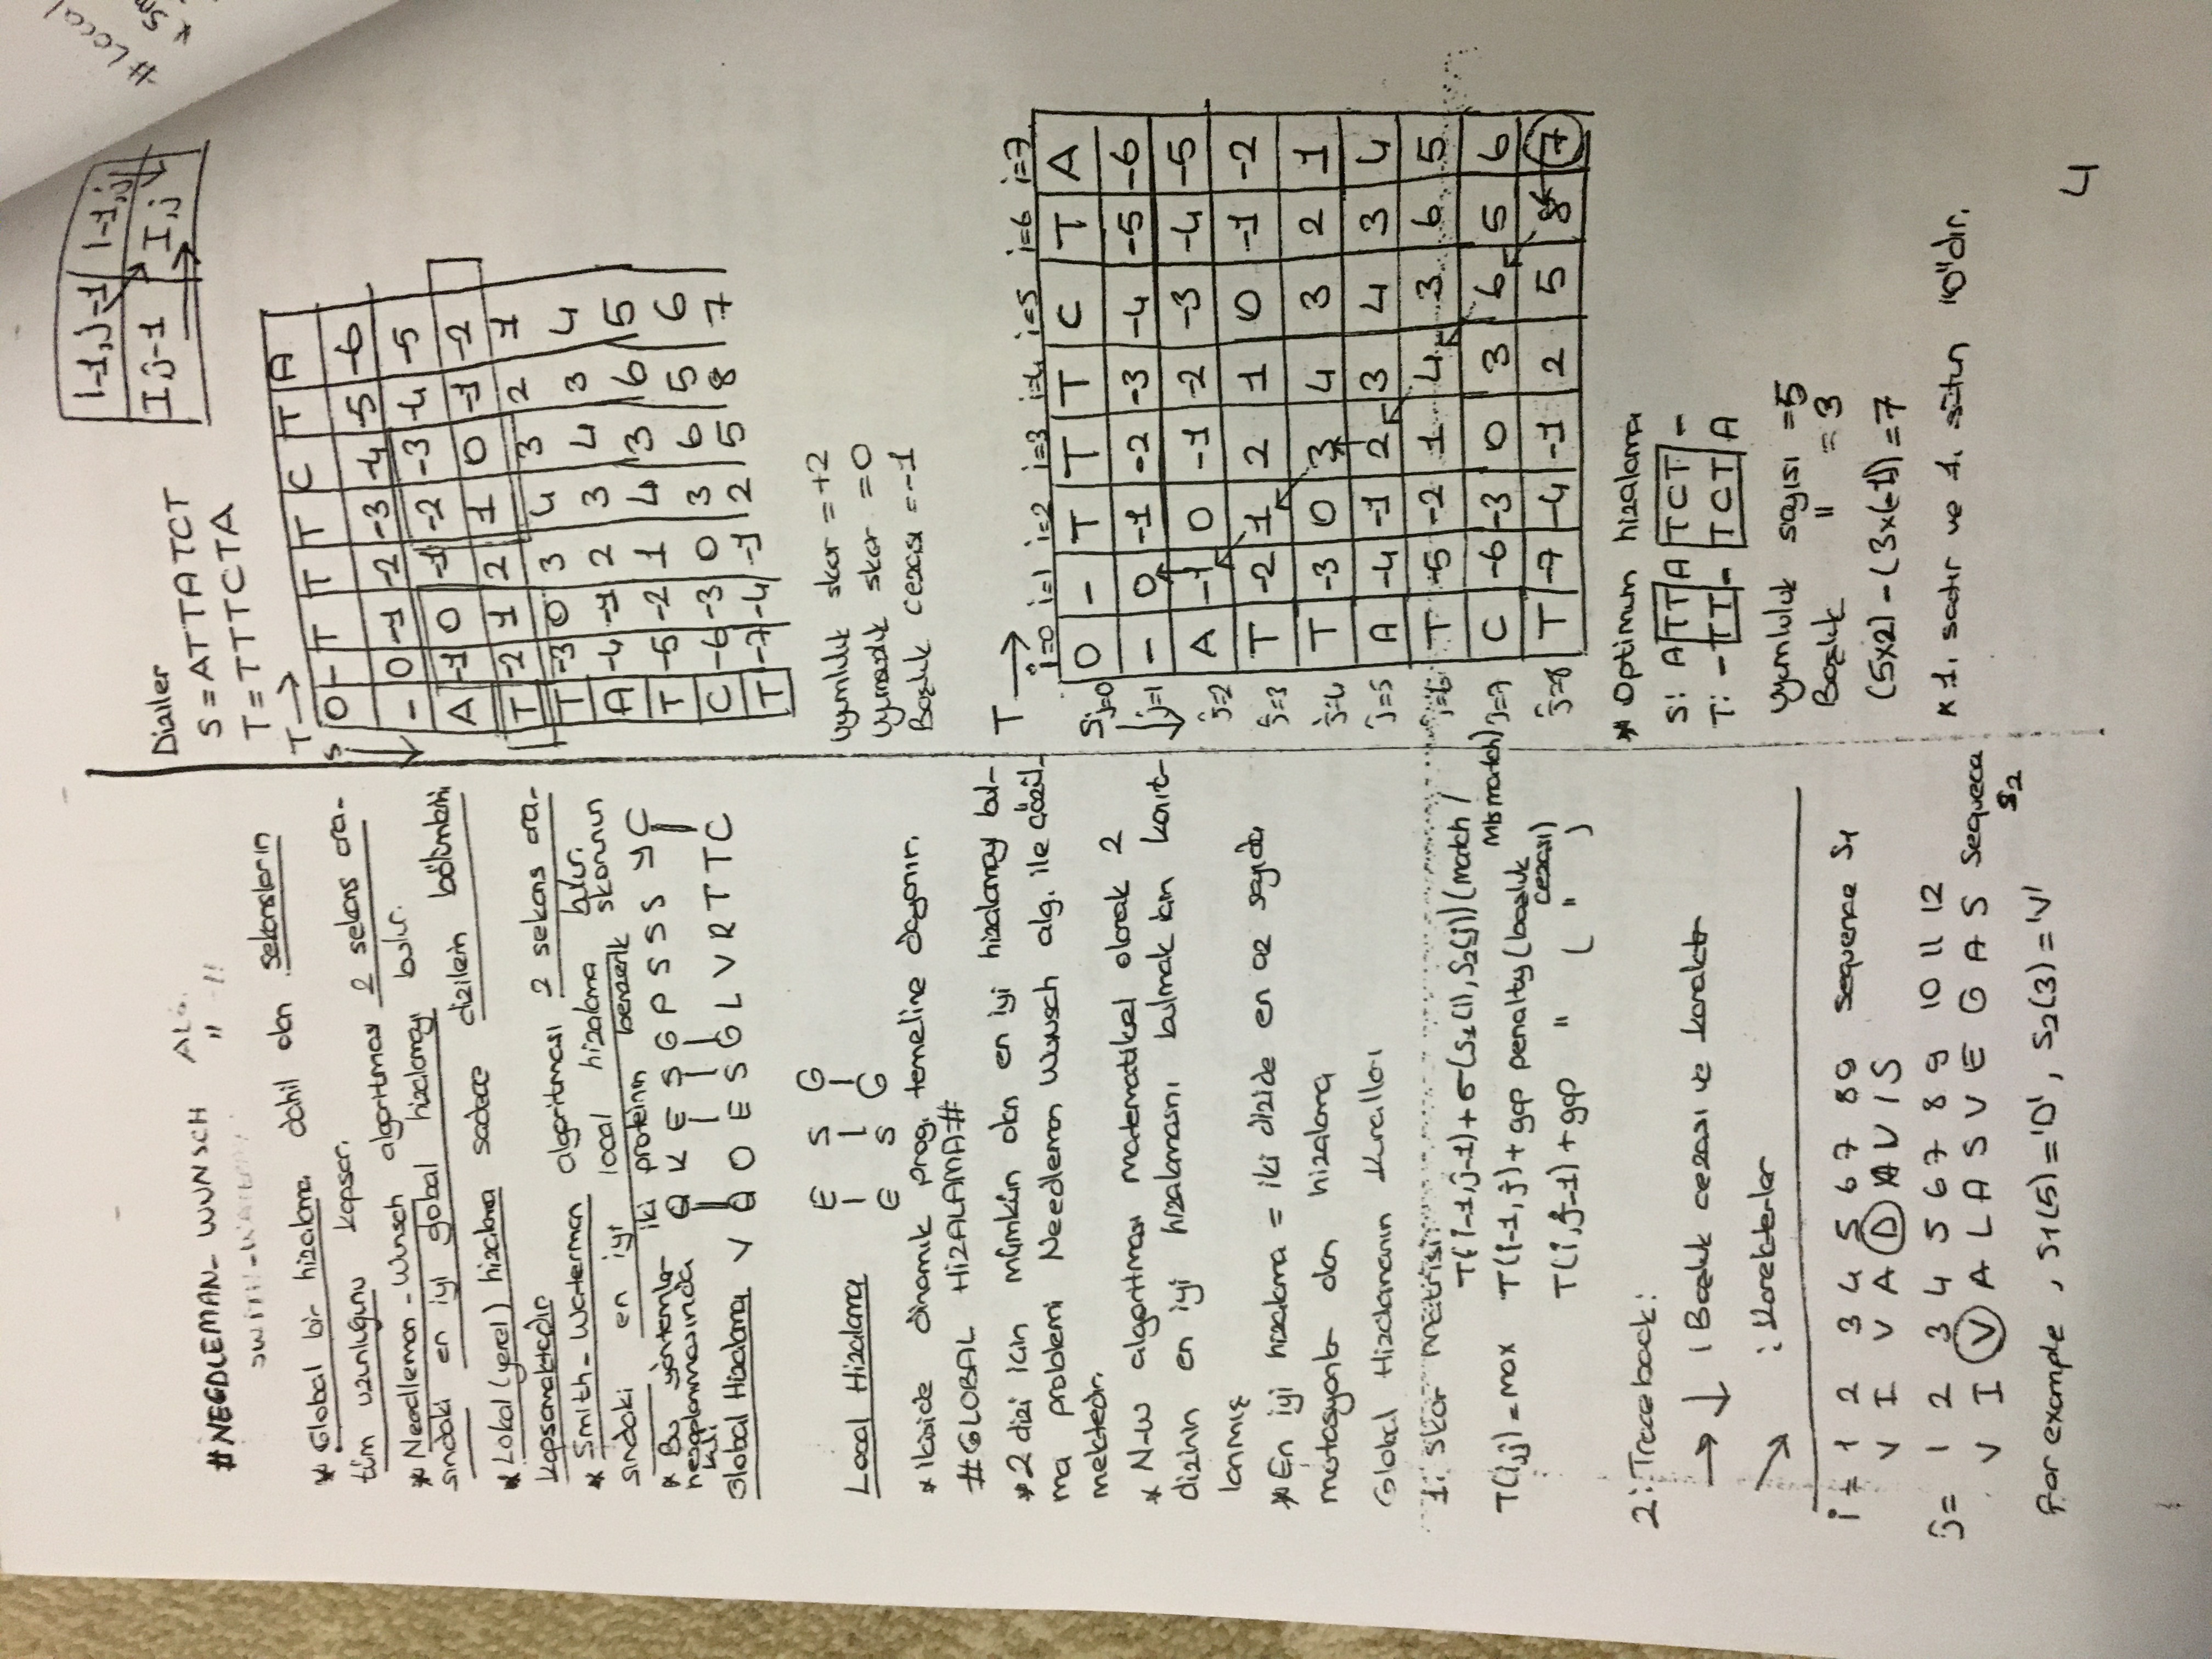 #NEEDLEMAN- WUNSCH ALG.
SWITH-WATERM " "
* Global bir hizalama dahil olan sekansların
tüm uzunluğunu kapsar.
* Needleman-Wunsch algoritması 2 sekans ara-
sındaki en iyi global hizalamayı bulur.
* Lokal (yerel) hizalama sadece dizilerin bölümlerini
kapsamaktadır
* Smith-Waterman algoritması 2 sekans ara-
sındaki en iyi local hizalama bulur.
* Bu yöntemler iki proteinin benzerlik skorunun
hesaplanmasında
kul.
Q K E S G P S S S Y C
Global Hizalama V Q O E S G L V R T T C
E S G
Local Hizalama
E S G
* Ikiside dinamik prog. temeline dayanır.
#GLOBAL HiZALAMA#
* 2 dizi için mümkün olan en iyi hizalamayı bul-
ma problemi Needleman Wunsch alg. ile çözül-
mektedir.
* N-W algoritması matematiksel olarak 2
dizinin en iyi hizalamasını bulmak için kanıt-
lanmış
* En iyi hizalama = iki dizide en az sayıda
mutasyonlar olan hizalama
Global Hizalamanın Kuralları
1: Skor Matrisi:
T(i-1,j-1)+σ(S1(i),S2(j)) (match /
mismatch)
T(i,j)=max T(i-1,j)+gap penalty (boşluk
cezası)
T(i,j-1)+gap " ( " )
2: Traceback:
→ ↓ : Boşluk cezası ve karakter
↘ : Karekterler
i = 1 2 3 4 5 6 7 8 9 Sequence S1
V I V A D A V I S
j = 1 2 3 4 5 6 7 8 9 10 11 12
V I V A L A S V E G A S Sequeca
S2
For example , S1(5)='D' , S2(3)='V'
I-1,j-1 I-1,j
I,j-1 I,j
Diziler
S=ATTATCT
T=TTTCTA
T→
S 0 - T T T C T A
- 0 -1 -2 -3 -4 -5 -6
A -1 0 -1 -2 -3 -4 -5
T -2 1 2 1 0 -1 -2
T -3 0 3 4 3 2 1
A -4 -1 2 3 4 3 4
T -5 -2 1 4 3 6 5
C -6 -3 0 3 6 5 6
T -7 -4 -1 2 5 8 7
Uyumluluk skor = +2
Uyumsuzluk skor = 0
Boşluk cezası = -1
T →
i=0 i=1 i=2 i=3 i=4 i=5 i=6 i=7
S j=0 0 - T T T C T A
j=1 - 0 -1 -2 -3 -4 -5 -6
j=2 A -1 0 -1 -2 -3 -4 -5
j=3 T -2 1 2 1 0 -1 -2
j=4 T -3 0 3 4 3 2 1
j=5 A -4 -1 2 3 4 3 4
j=6 T -5 -2 1 4 3 6 5
j=7 C -6 -3 0 3 6 5 6
j=8 T -7 -4 -1 2 5 8 7
* Optimum hizalama
S: A TT A TCT -
T: - TT - TCT A
Uyumluluk sayısı = 5
Boşluk " = 3
(5x2) - (3x(-1)) = 7
* 1. satır ve 1. sütun "0"dır.
4
#Local
* Sm